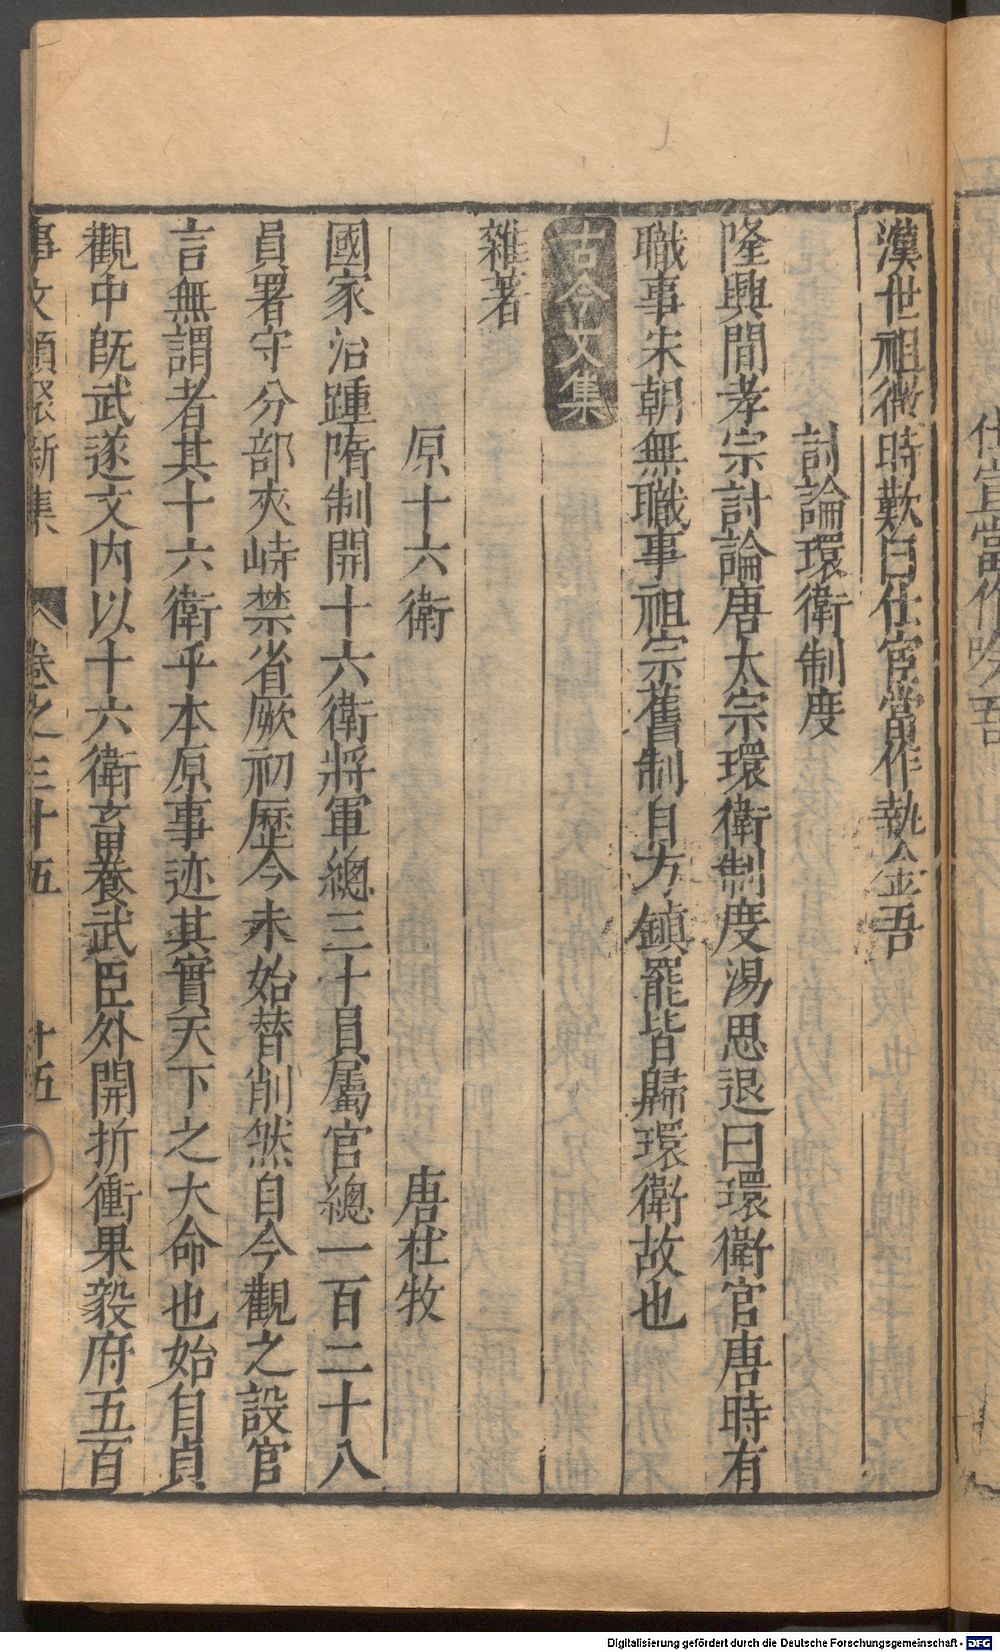 仕宦當作執金吾
漢世祖微時歎曰仕宦當作執金吾
討論環衛制度
隆興間孝宗討論唐太宗環衛制度湯思退曰環衛官唐時有
職事朱朝無職事祖宗舊制自方鎮罷皆歸環衛故也
古今文集
雜著
原十六衛 唐杜牧
國家治踵隋制開十六衛將軍總三十員屬官總一百二十八
員署守分部夾峙禁省厥初歷今未始替削然自今觀之設官
言無謂者其十六衛乎本原事迹其實天下之大命也始自貞
觀中旣武遂文內以十六衛畜養武臣外開折衝果毅府五百
事文類聚新集 卷之三十五 十五
Digitalisierung gefördert durch die Deutsche Forschungsgemeinschaft - DFG